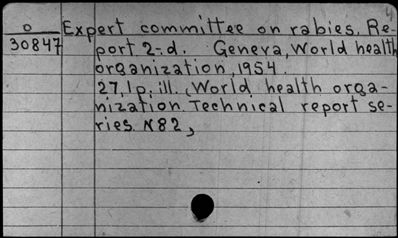 4
o Expert committee on rabies. Re-
30847 port 2-d. Geneva, World health
organization, 1954.
27, 1 p. ill. (World health orga-
nization. Technical report se-
ries. N82,